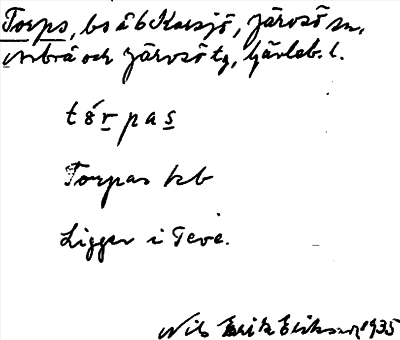 Torps, bs å b Karsjö, Järvsö sn,
Arbrå och Järvsö tg, Gävleb. l.
tórpas
Torpas kb
Ligger i Teve.
Nils Erik Eriksson 1935